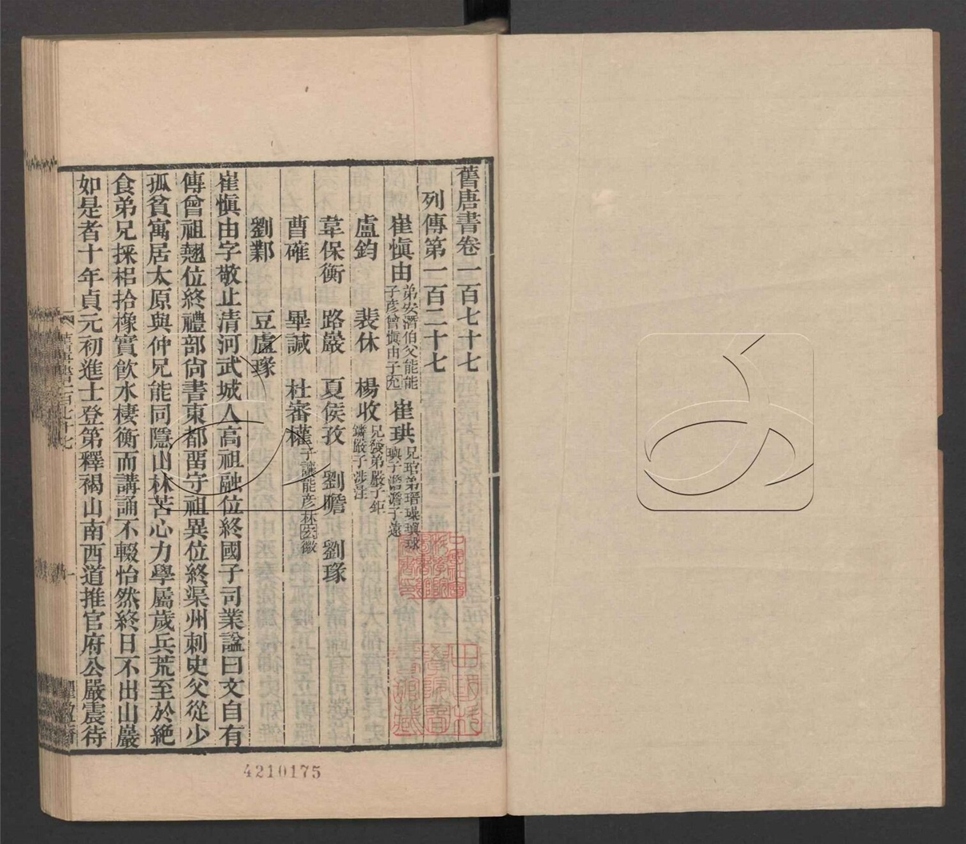 舊唐書卷一百七十七
列傳第一百二十七
崔慎由 弟安潛 伯父能 能子彥曾 慎由子允 崔珙 兄琯 弟瑨 璪 璵 球 璵子澹 澹子遠
盧鈞 裴休 楊收 兄發 弟嚴 子鉅 鏻 嚴子涉 注
韋保衡 路巖 夏侯孜 劉瞻 劉瑑
曹確 畢諴 杜審權 子讓能 彥林 弘徽
劉鄴 豆盧瑑
崔慎由字敬止清河武城人高祖融位終國子司業諡曰文自有
傳曾祖翹位終禮部尚書東都留守祖異位終渠州刺史父從少
孤貧寓居太原與仲兄能同隱山林苦心力學屬歲兵荒至於絕
食弟兄採梠拾橡實飲水棲衡而講誦不輟怡然終日不出山巖
如是者十年貞元初進士登第釋褐山南西道推官府公嚴震待
4210175